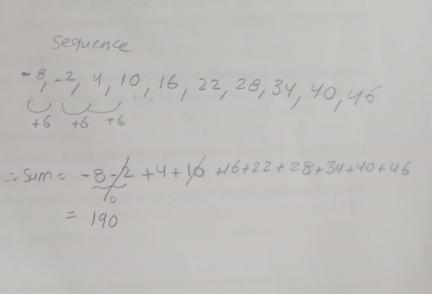 Sequence
-8, -2, 4, 10, 16, 22, 28, 34, 40, 46
+6 +6 +6
∴ Sum = -8-2 +4+10 +16+22+28+34+40+46
10
= 190